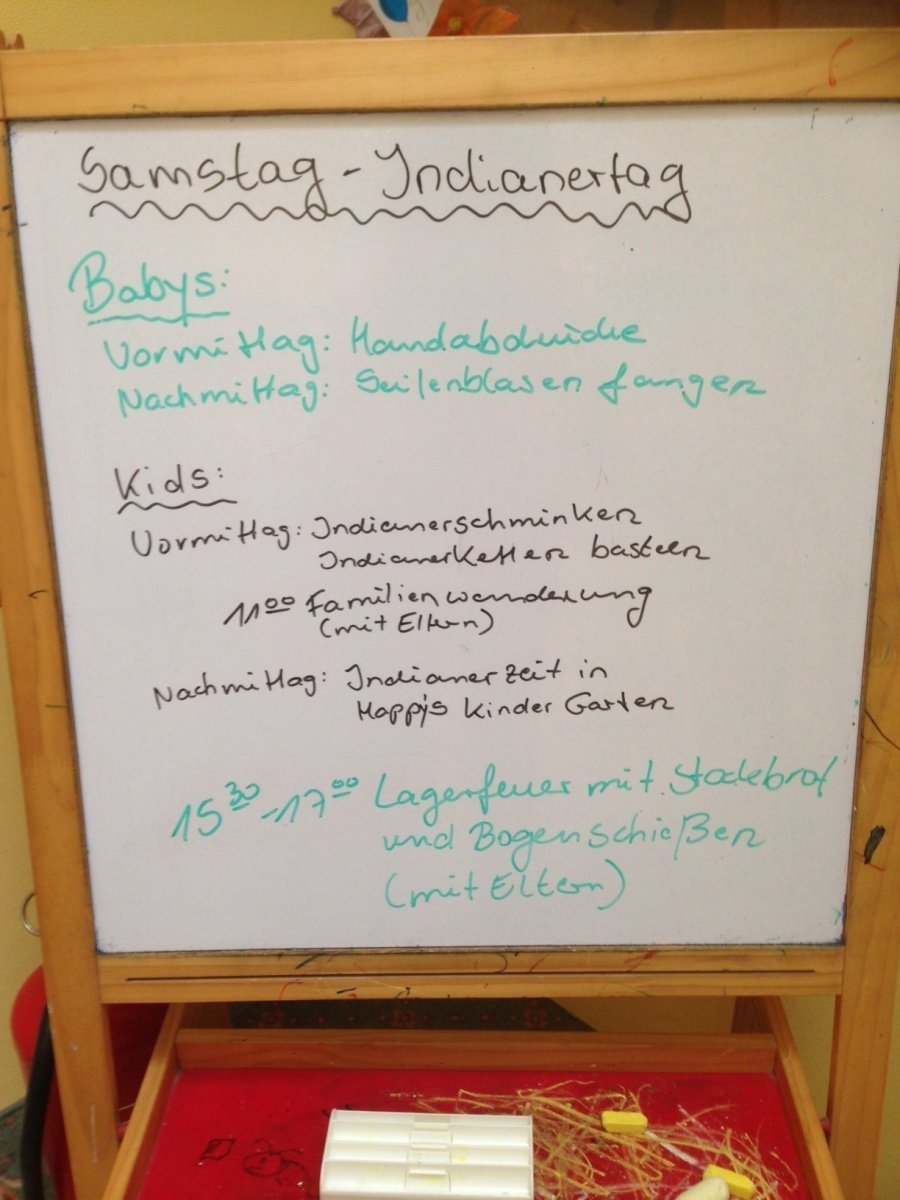 Samstag - Indianertag
Babys:
Vormittag: Handabdrücke
Nachmittag: Seifenblasen fangen
Kids:
Vormittag: Indianerschminken
Indianerketten basteln
11⁰⁰ Familienwanderung
(mit Eltern)
Nachmittag: Indianerzeit in
Happy's Kinder Garten
15³⁰-17⁰⁰ Lagerfeuer mit Stockbrot
und Bogenschießen
(mit Eltern)